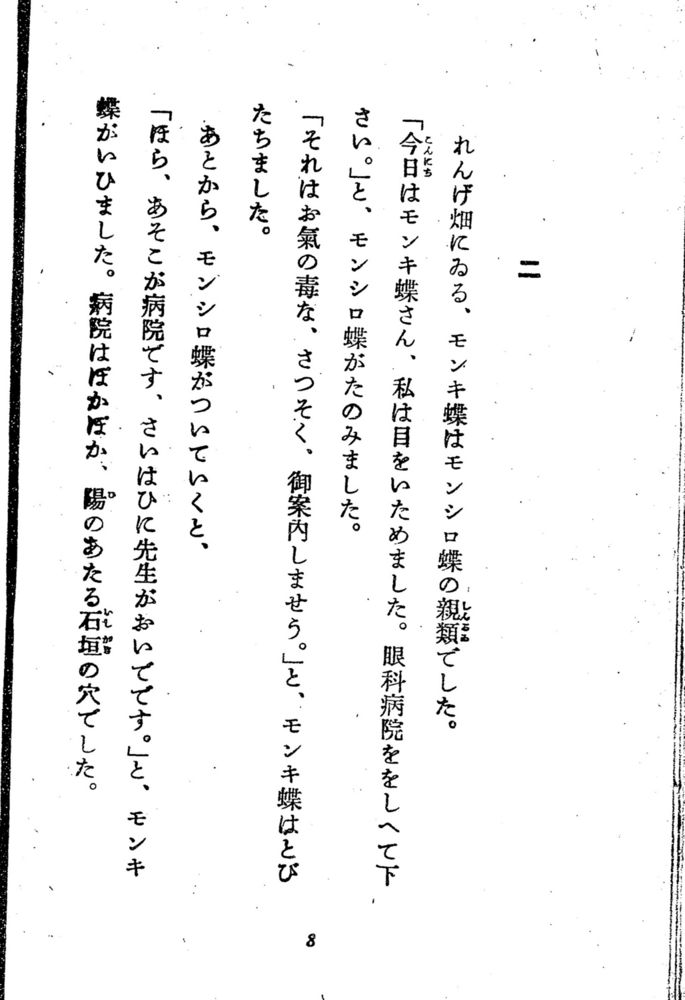 二
れんげ畑にゐる、モンキ蝶はモンシロ蝶の親類でした。
「今日はモンキ蝶さん、私は目をいためました。眼科病院ををしへて下
さい。」と、モンシロ蝶がたのみました。
「それはお氣の毒な、さつそく、御案内しませう。」と、モンキ蝶はとび
たちました。
あとから、モンシロ蝶がついていくと、
「ほら、あそこが病院です、さいはひに先生がおいでです。」と、モンキ
蝶がいひました。病院はぽかぽか、陽のあたる石垣の穴でした。
8